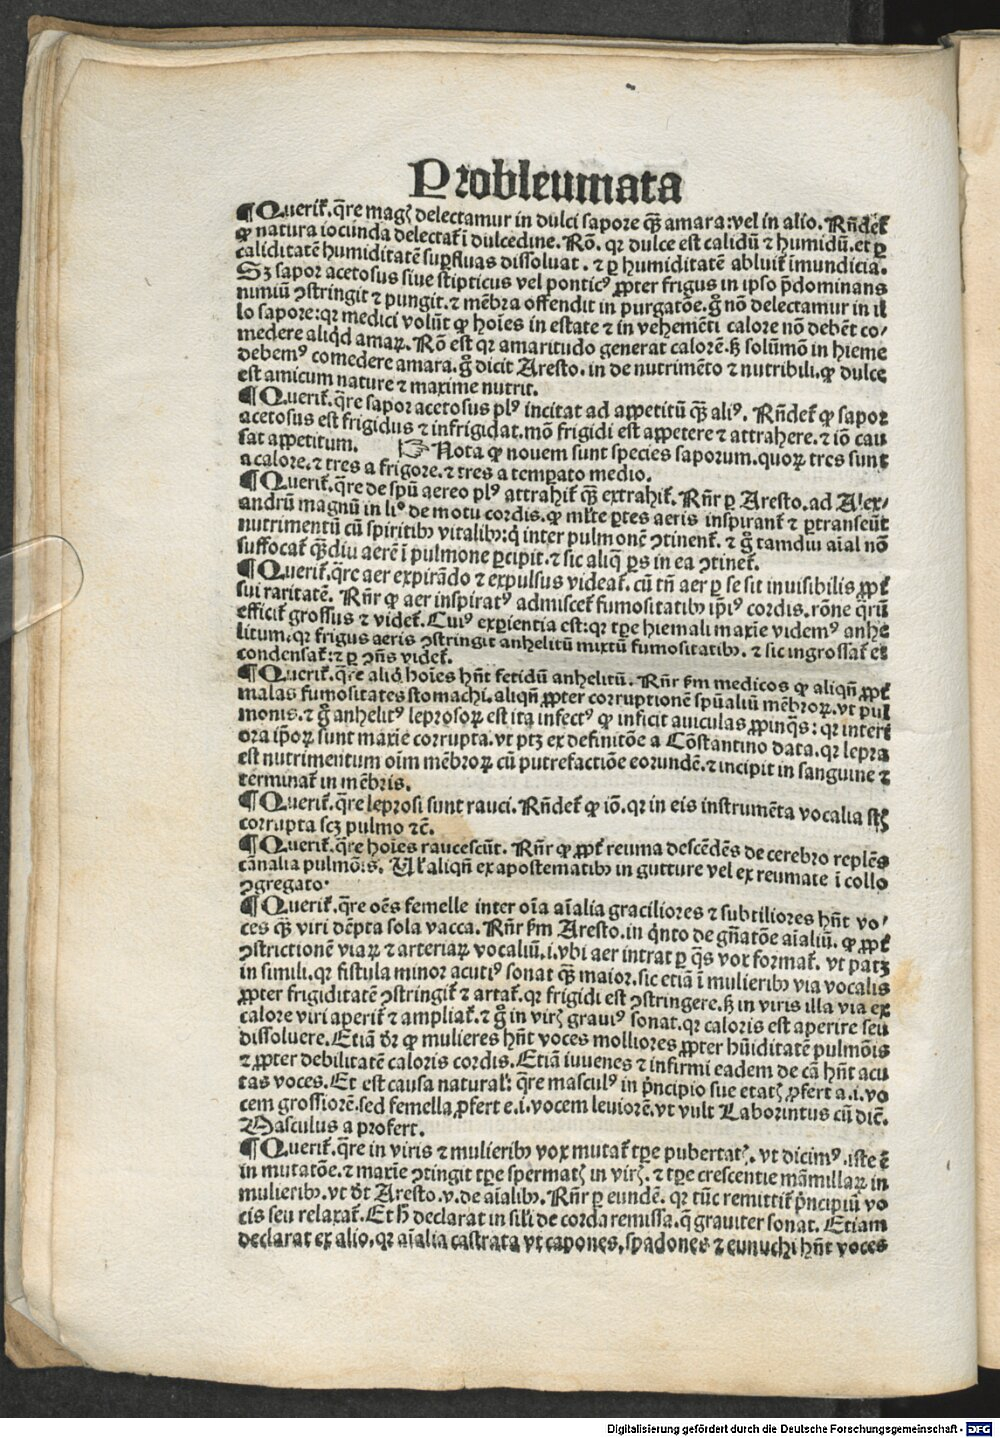 Probleumata
¶ Queriť. q̃re magꝭ delectamur in dulci sapore q̃ꝫ amara: vel in alio. Rñdeť
ꝙ natura iocunda delectať ĩ dulcedine. Rõ. qꝛ dulce est calidũ ⁊ humidũ. et ꝑ
caliditatẽ humiditatẽ suꝑfluas dissoluat. ⁊ ꝑ humiditatẽ abluiť ĩmundicia.
Sꝫ sapor acetosus siue stipticus vel ponticꝰ ꝓpter frigus in ipso p̃dominans
nimiũ ꝯstringit ⁊ pungit. ⁊ mẽbra offendit in purgatõe. g̊ nõ delectamur in il
lo sapore: qꝛ medici volũt ꝙ hoĩes in estate ⁊ in vehemẽti calore nõ debẽt co⸗
medere aliq̇d amaꝝ. Rõ est qꝛ amaritudo generat calorẽ. ß solũmõ in hieme
debemꝰ comedere amara. g̊ dicit Aresto. in de nutrimẽto ⁊ nutribili. ꝙ dulce
est amicum nature ⁊ maxime nutrit.
¶ Queriť. q̃re sapor acetosus plꝰ incitat ad appetitũ q̃ꝫ aliꝰ. Rñdeť ꝙ sapor
acetosus est frigidus ⁊ infrigidat. mõ frigidi est appetere ⁊ attrahere. ⁊ iõ cau
sat appetitum. ☞ Nota ꝙ nouem sunt species saporum. quoꝝ tres sunt
a calore. ⁊ tres a frigore. ⁊ tres a temꝑato medio.
¶ Queriť. q̃re de spũ aereo plꝰ attrahiť q̃ꝫ extrahiť. Rñr ꝑ Aresto. ad Alex⸗
andrũ magnũ in liº de motu cordis. ꝙ ml̃te ꝑtes aeris inspiranť ⁊ ꝑtranseũt
nutrimentũ cũ spiritibꝫ vitalibꝫ: q̇ inter pulmonẽ ꝯtinenť. ⁊ g̊ tamdiu aĩal nõ
suffocať q̃ꝫdiu aerẽ ĩ pulmone ꝑcipit. ⁊ sic aliq̃ ꝑs in ea ꝯtineť.
¶ Queriť. q̃re aer expirãdo ⁊ expulsus videať. cũ tñ aer ꝑ se sit inuisibilis ꝓpť
sui raritatẽ. Rñr ꝙ aer inspiratꝰ admisceť fumositatibꝫ ip̃iꝰ cordis. rõne q̃rũ
efficiť grossus ⁊ videť. Cuiꝰ exꝑientia est: qꝛ tꝑe hiemali maxĩe videmꝰ anhe
litum. qꝛ frigus aeris ꝯstringit anhelitũ mixtũ fumositatibꝫ. ⁊ sic ingrossať et
condensať: ⁊ ꝑ ꝯñs videť.
¶ Queriť. q̃re aliq̇ hoĩes hñt fetidũ anhelitũ. Rñr ßm medicos ꝙ aliqñ ꝓpť
malas fumositates stomachi. aliqñ ꝓpter corruptionẽ spũaliũ mẽbroꝝ. vt pul
monis. ⁊ g̊ anhelitꝰ leprosoꝝ est ita infectꝰ ꝙ inficit auiculas ꝓpinq̃s: qꝛ interi
ora ip̃oꝝ sunt maxĩe corrupta. vt ptꝫ ex definitõe a Cõstantino data. qꝛ lepra
est nutrimentum oĩm mẽbroꝝ cũ putrefactiõe eorundẽ. ⁊ incipit in sanguine ⁊
terminať in mẽbris.
¶ Queriť. q̃re leprosi sunt rauci. Rñdeť ꝙ iõ. qꝛ in eis instrumẽta vocalia st̃
corrupta scꝫ pulmo ⁊c̃.
¶ Queriť. q̃re hoĩes raucescũt. Rñr ꝙ ꝓpť reuma descẽdẽs de cerebro replẽs
cãnalia pulmõis. Vl̃ aliqñ ex apostematibꝫ in gutture vel ex reumate ĩ collo
ꝯgregato.
¶ Queriť. q̃re oẽs femelle inter oĩa aĩalia graciliores ⁊ subtiliores hñt vo⸗
ces q̃ꝫ viri dẽpta sola vacca. Rñr ßm Aresto. in q̇nto de gñatõe aĩaliũ. ꝙ ꝓpť
ꝯstrictionẽ viaꝝ ⁊ arteriaꝝ vocaliũ. i. vbi aer intrat ꝑ q̃s vox formať. vt patꝫ
in simili. qꝛ fistula minor acutiꝰ sonat q̃ꝫ maior. sic etiã ĩ mulieribꝫ via vocalis
ꝓpter frigiditatẽ ꝯstringiť ⁊ artať. qꝛ frigidi est ꝯstringere. ß in viris illa via ex
calore viri aperiť ⁊ ampliať. ⁊ g̊ in virꝭ grauiꝰ sonat. qꝛ caloris est aperire seu
dissoluere. Etiã dr̃ ꝙ mulieres hñt voces molliores ꝓpter hũiditatẽ pulmõis
⁊ ꝓpter debilitatẽ caloris cordis. Etiã iuuenes ⁊ infirmi eadem de cã hñt acu
tas voces. Et est causa natural̃: q̃re masculꝰ in p̃ncipio sue etatꝭ ꝓfert a. i. vo
cem grossiorẽ. sed femella ꝓfert e. i. vocem leuiorẽ. vt vult Laborintus cũ dic̃.
Masculus a profert.
¶ Queriť. q̃re in viris ⁊ mulieribꝫ vox mutať tꝑe pubertatꝭ. vt dicimꝰ. iste ẽ
in mutatõe. ⁊ maxĩe ꝯtingit tꝑe spermatꝭ in virꝭ. ⁊ tꝑe crescentie mãmillaꝝ in
mulieribꝫ. vt dr̃ Aresto. v. de aĩalibꝫ. Rñr ꝑ eundẽ. qꝛ tũc remittiť p̃ncipiũ vo
cis seu relaxať. Et h̃ declarat in sil̃i de corda remissa. q̃ grauiter sonat. Etiam
declarat ex alio. qꝛ aĩalia castrata vt capones, spadones ⁊ eunuchi hñt voces
Digitalisierung gefördert durch die Deutsche Forschungsgemeinschaft - DFG